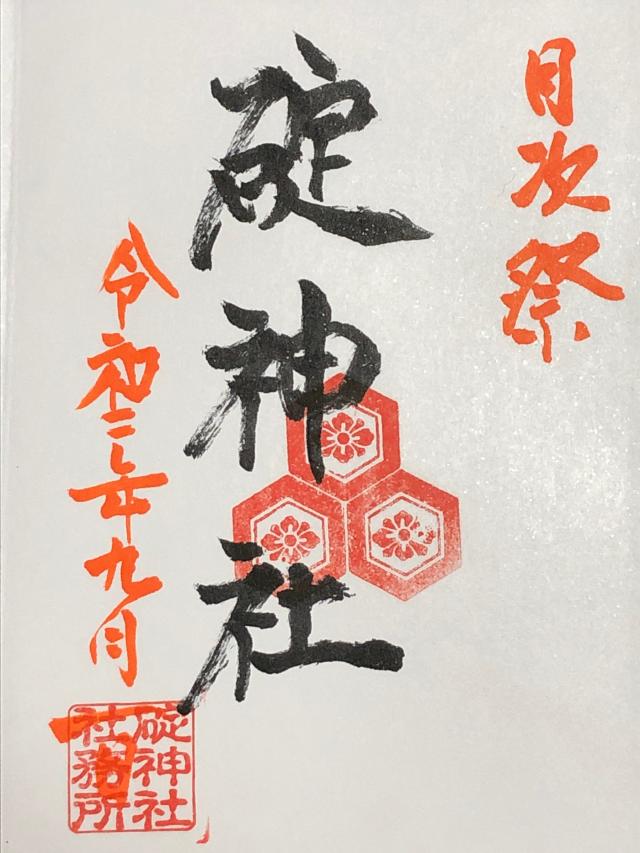 月次祭
碇神社
令和三年九月一日
碇神社
社務所